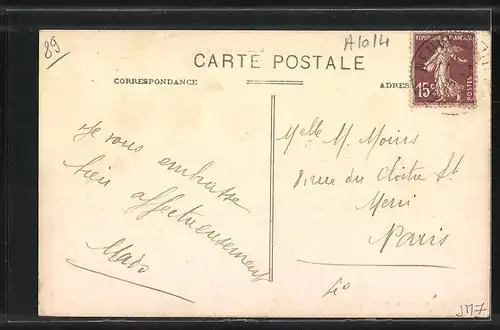 89
A1014
CARTE POSTALE
CORRESPONDANCE
ADRES
REPUBLIQUE FRANÇAISE
15c
POSTES
Je vous embrasse
bien affectueusement
Mado
Melle M.
8 rue du Cloître St
Merri
Paris